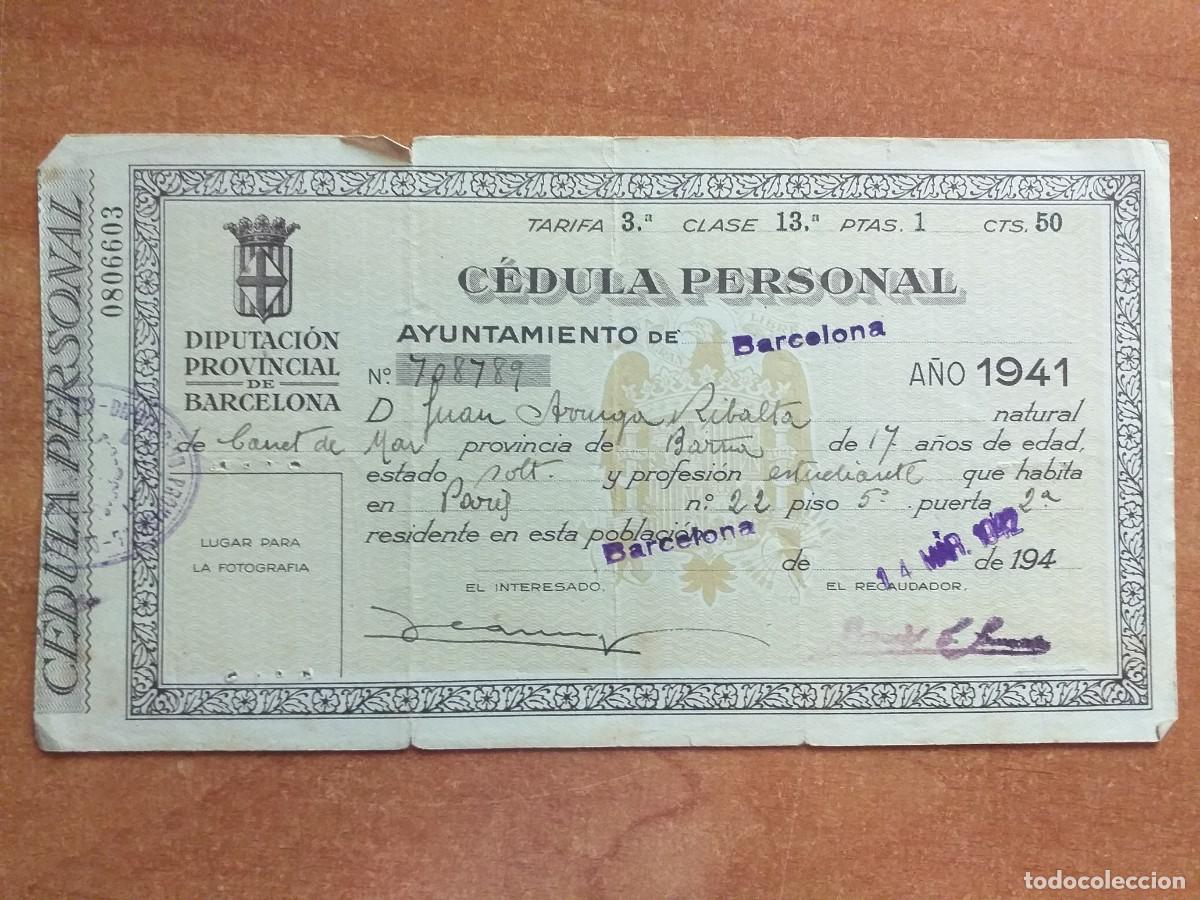 CÉDULA PERSONAL
0806603
TARIFA 3.ª CLASE 13.ª PTAS. 1 CTS. 50
CÉDULA PERSONAL
DIPUTACIÓN
PROVINCIAL
DE
BARCELONA
AYUNTAMIENTO DE Barcelona
Nº 708789 AÑO 1941
D. Juan Ribalta natural
de Canet de Mar provincia de Barna de 17 años de edad,
estado solt. y profesión estudiante que habita
en Paris nº 22 piso 5º puerta 2ª
residente en esta población
Barcelona de 14 MAR. 1942 de 194
LUGAR PARA
LA FOTOGRAFIA
EL INTERESADO, EL RECAUDADOR,
todocoleccion